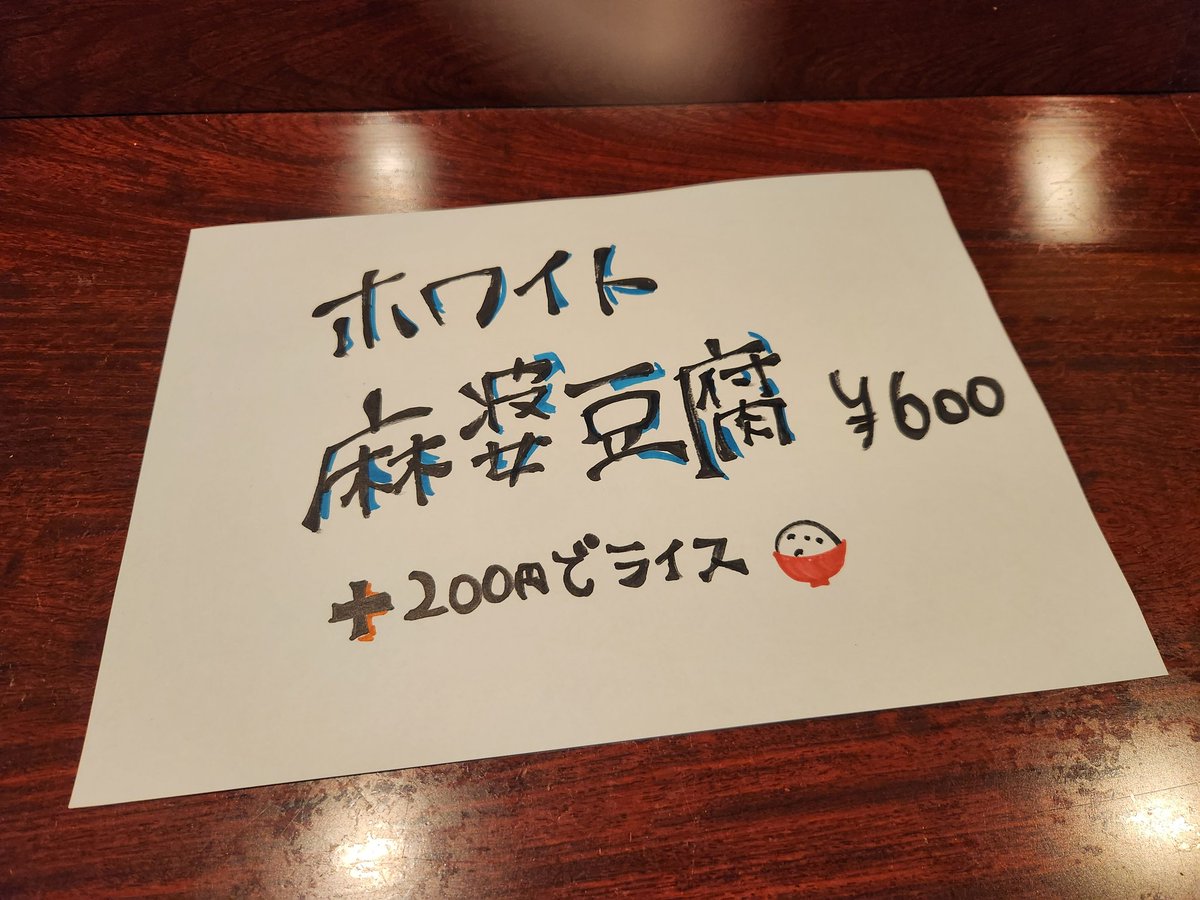 ホワイト
麻婆豆腐 ¥600
+200円でライス